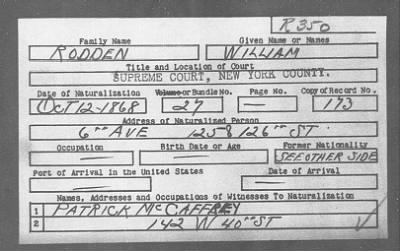 R350
Family Name Given Name or Names
RODDEN WILLIAM
Title and Location of Court
SUPREME COURT, NEW YORK COUNTY.
Date of Naturalization Volume or Bundle No. Page No. Copy of Record No.
OCT 12-1868 27 — 173
Address of Naturalized Person
6TH AVE 125 & 126TH ST.
Occupation Birth Date or Age Former Nationality
— — SEE OTHER SIDE
Port of Arrival in the United States Date of Arrival
— —
Names, Addresses and Occupations of Witnesses To Naturalization
1 PATRICK McCAFFREY
2 142 W 40TH ST